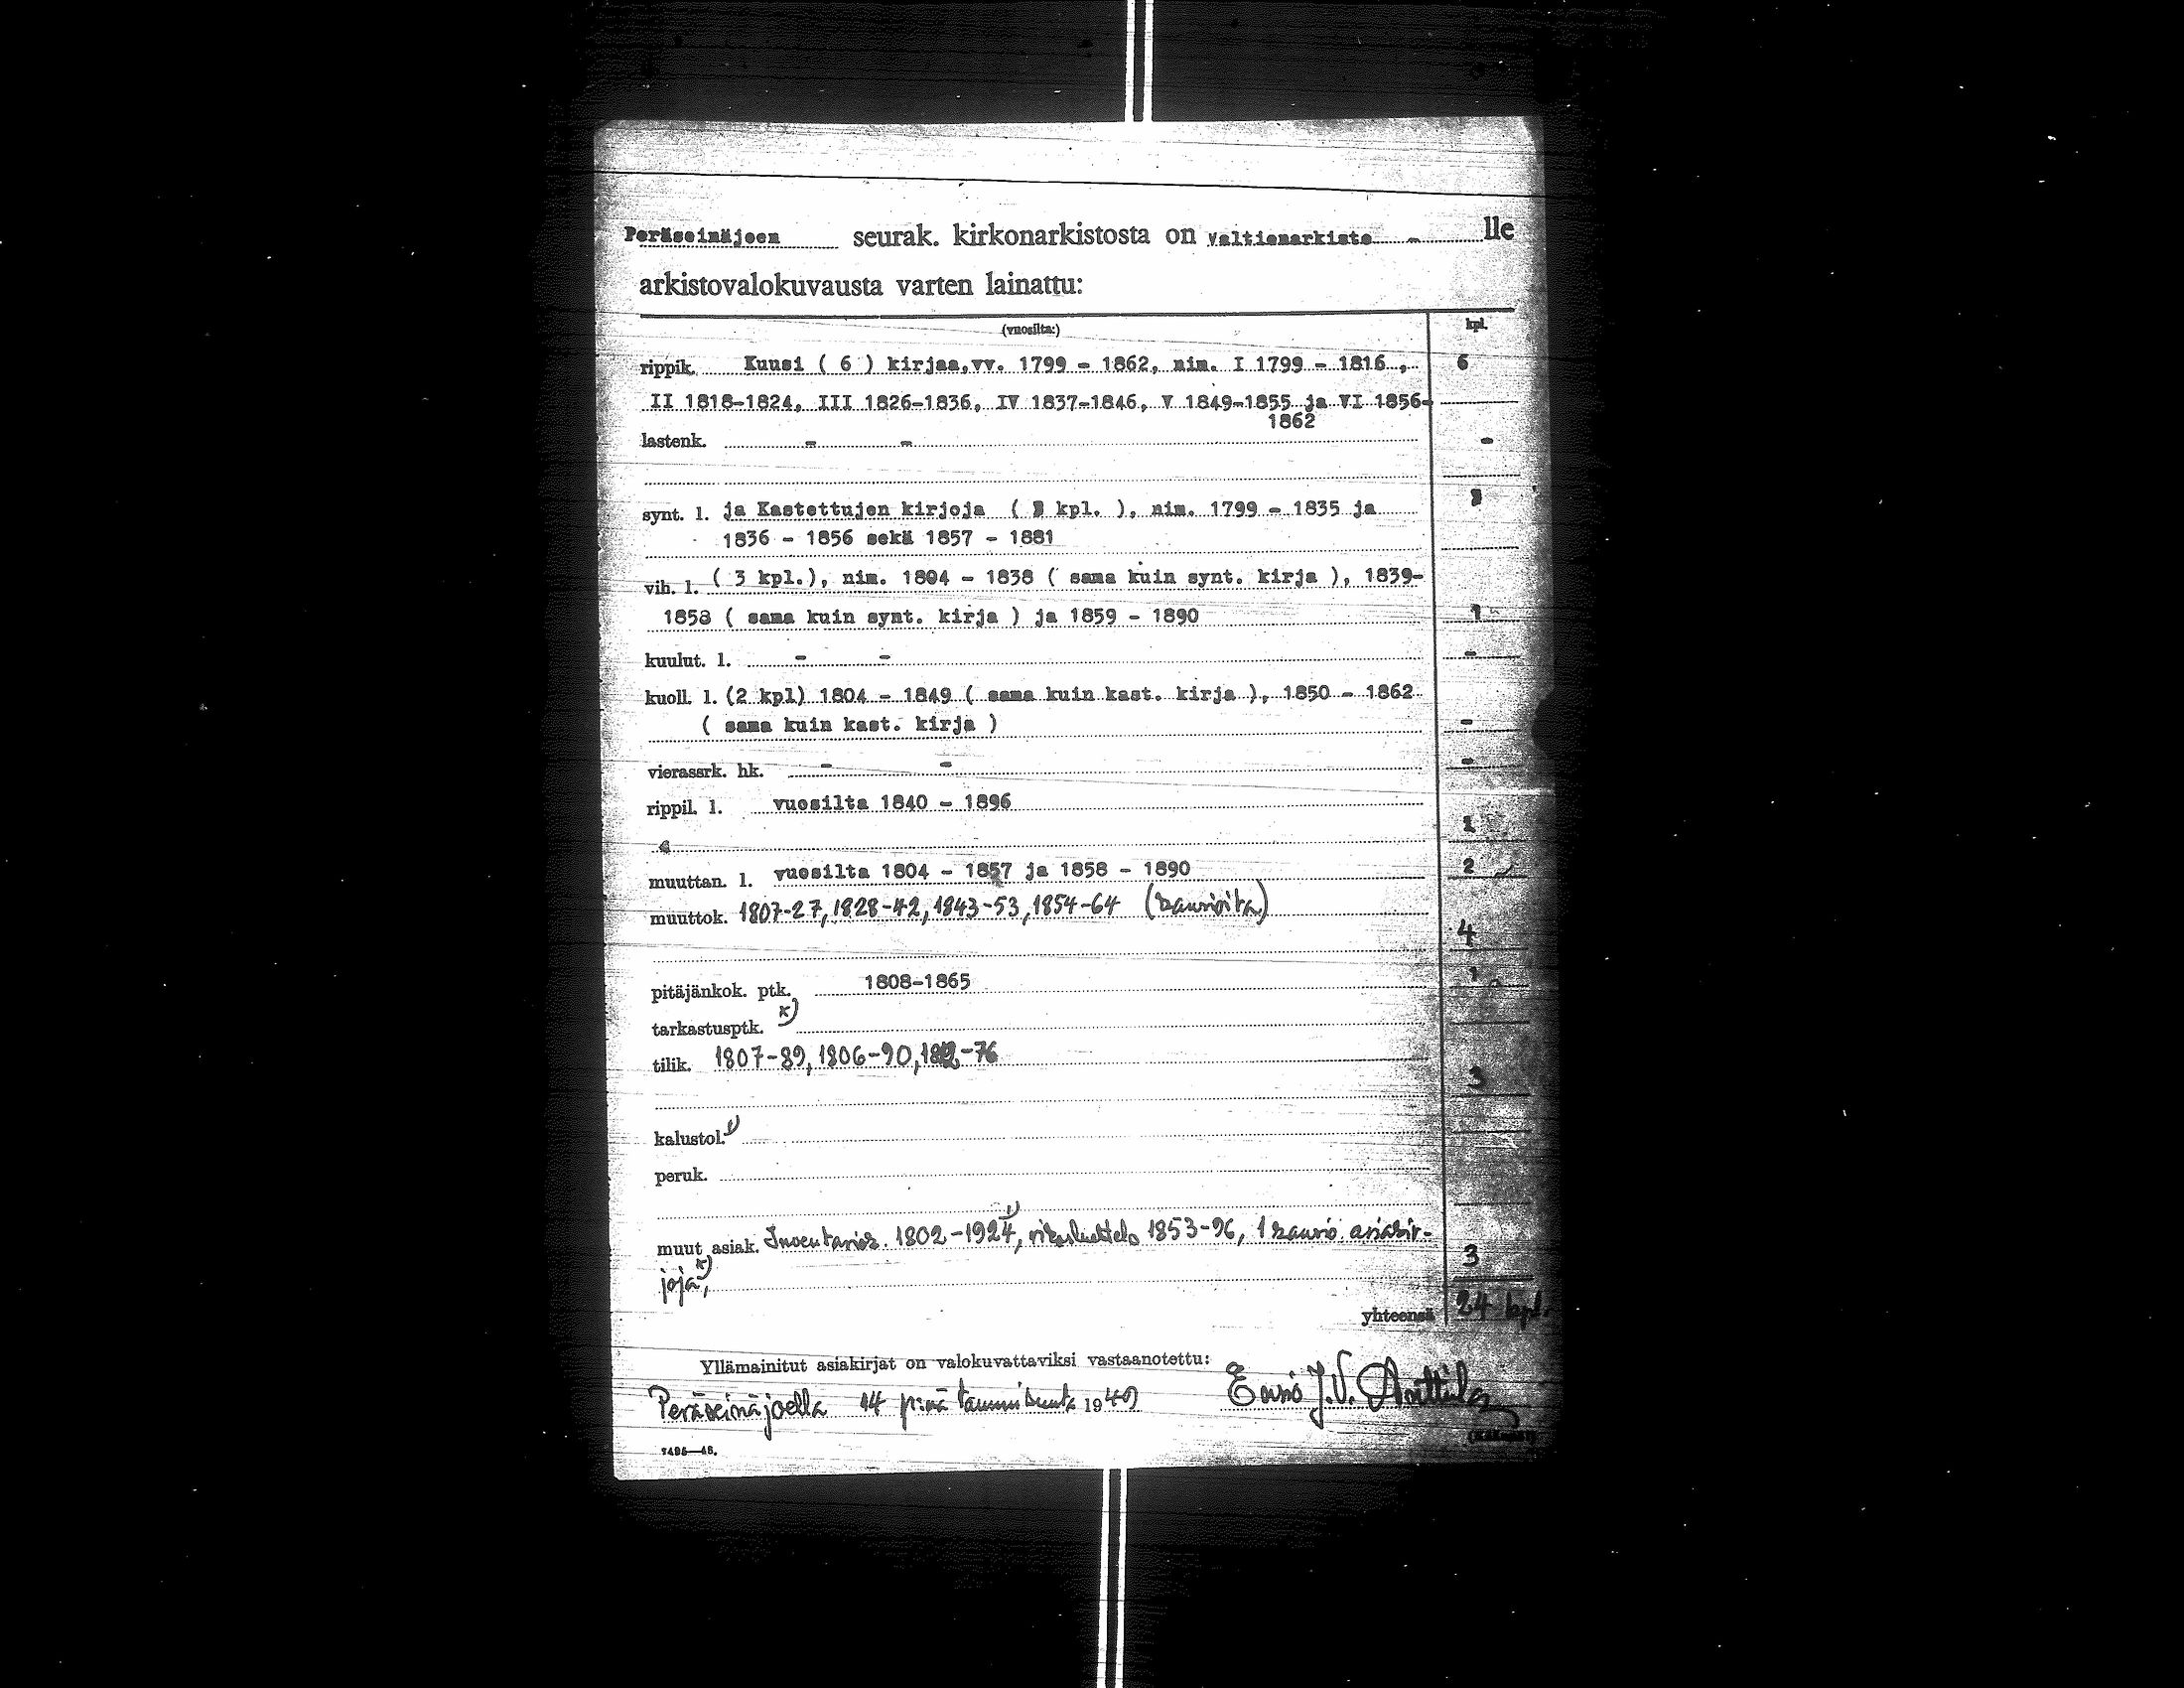 Peräseinäjoen seurak. kirkonarkistosta on Valtionarkisto - lle
arkistovalokuvausta varten lainattu:
(vuosilta:) kpl.
rippik. Kuusi ( 6 ) kirjaa,vv. 1799 - 1862, nim. I 1799 - 1816 , 6
II 1818-1824, III 1826-1836, IV 1837-1846, V 1849-1855 ja VI 1856-
1862
lastenk. - - -
synt. l. ja Kastettujen kirjoja ( 3 kpl. ), nim. 1799 - 1835 ja 3
1836 - 1856 sekä 1857 - 1881
vih. l. ( 3 kpl.), nim. 1804 - 1838 ( sama kuin synt. kirja ), 1839-
1858 ( sama kuin synt. kirja ) ja 1859 - 1890 1
kuulut. l. - - -
kuoll. l. (2 kpl) 1804 - 1849 ( sama kuin kast. kirja ), 1850 - 1862
( sama kuin kast. kirja ) -
vierassrk. hk. - - -
rippil. l. vuosilta 1840 - 1896
1
muuttan. l. vuosilta 1804 - 1857 ja 1858 - 1890 2
muuttok. 1807-27, 1828-42, 1843-53, 1854-64 (4
pitäjänkok. ptk. 1808-1865 1
tarkastusptk. x)
tilik. 1807-89, 1806-90, -76
3
kalustol. 1)
peruk.
muut asiak. Inventarior. 1802-1924 1), rikosluettelo 1853-96, 1 asiakir-
joja x), 3
yhteensä 24 kpl.
Yllämainitut asiakirjat on valokuvattaviksi vastaanotettu:
Peräseinäjoella 14 p:nä tammikuuta 1949 J.V. Anttila
7496—48.